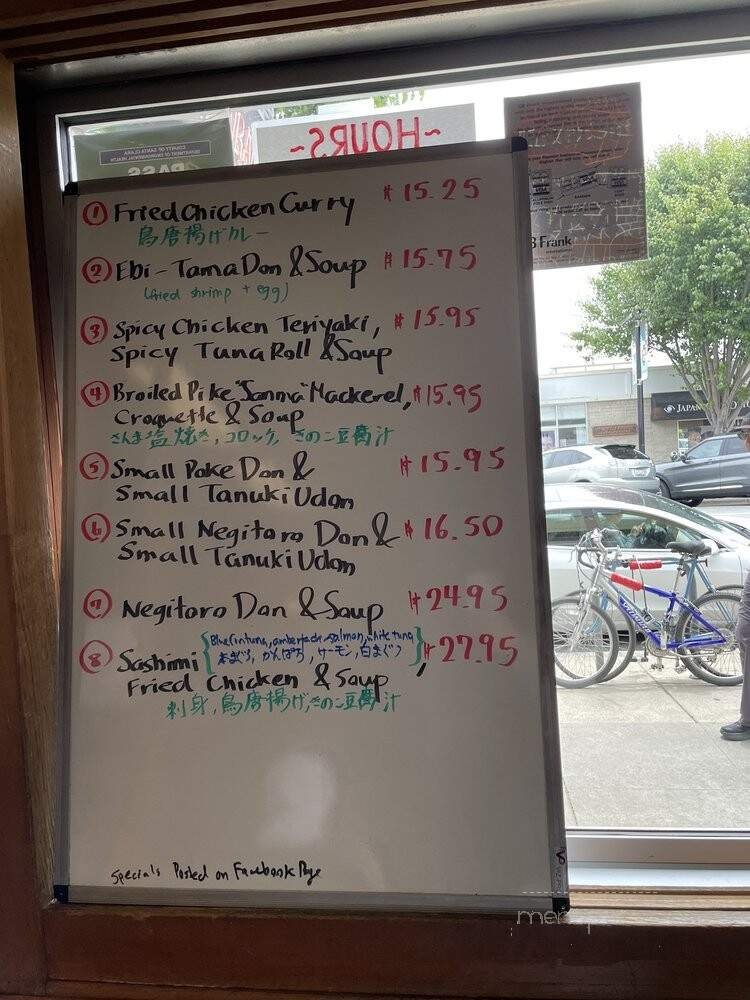 ~HOURS~
COUNTY OF SANTA CLARA
DEPARTMENT OF ENVIRONMENTAL HEALTH
PASS
Frank
JAPAN
① Fried Chicken Curry 15.25
鳥唐揚げカレー
② Ebi-Tama Don & Soup 15.75
(fried shrimp + egg)
③ Spicy Chicken Teriyaki, 15.95
Spicy Tuna Roll & Soup
④ Broiled Pike "Sanma" Mackerel, 15.95
Croquette & Soup
さんま塩焼き, コロッケ, きのこ豆腐汁
⑤ Small Poke Don & 15.95
Small Tanuki Udon
⑥ Small Negitoro Don & 16.50
Small Tanuki Udon
⑦ Negitoro Don & Soup 24.95
⑧ Sashimi {Bluefin tuna, amberjack, salmon, white tuna} 27.95
本まぐろ, かんぱち, サーモン, 白まぐろ
Fried Chicken & Soup
刺身, 鳥唐揚げ, きのこ豆腐汁
Specials Posted on Facebook Page